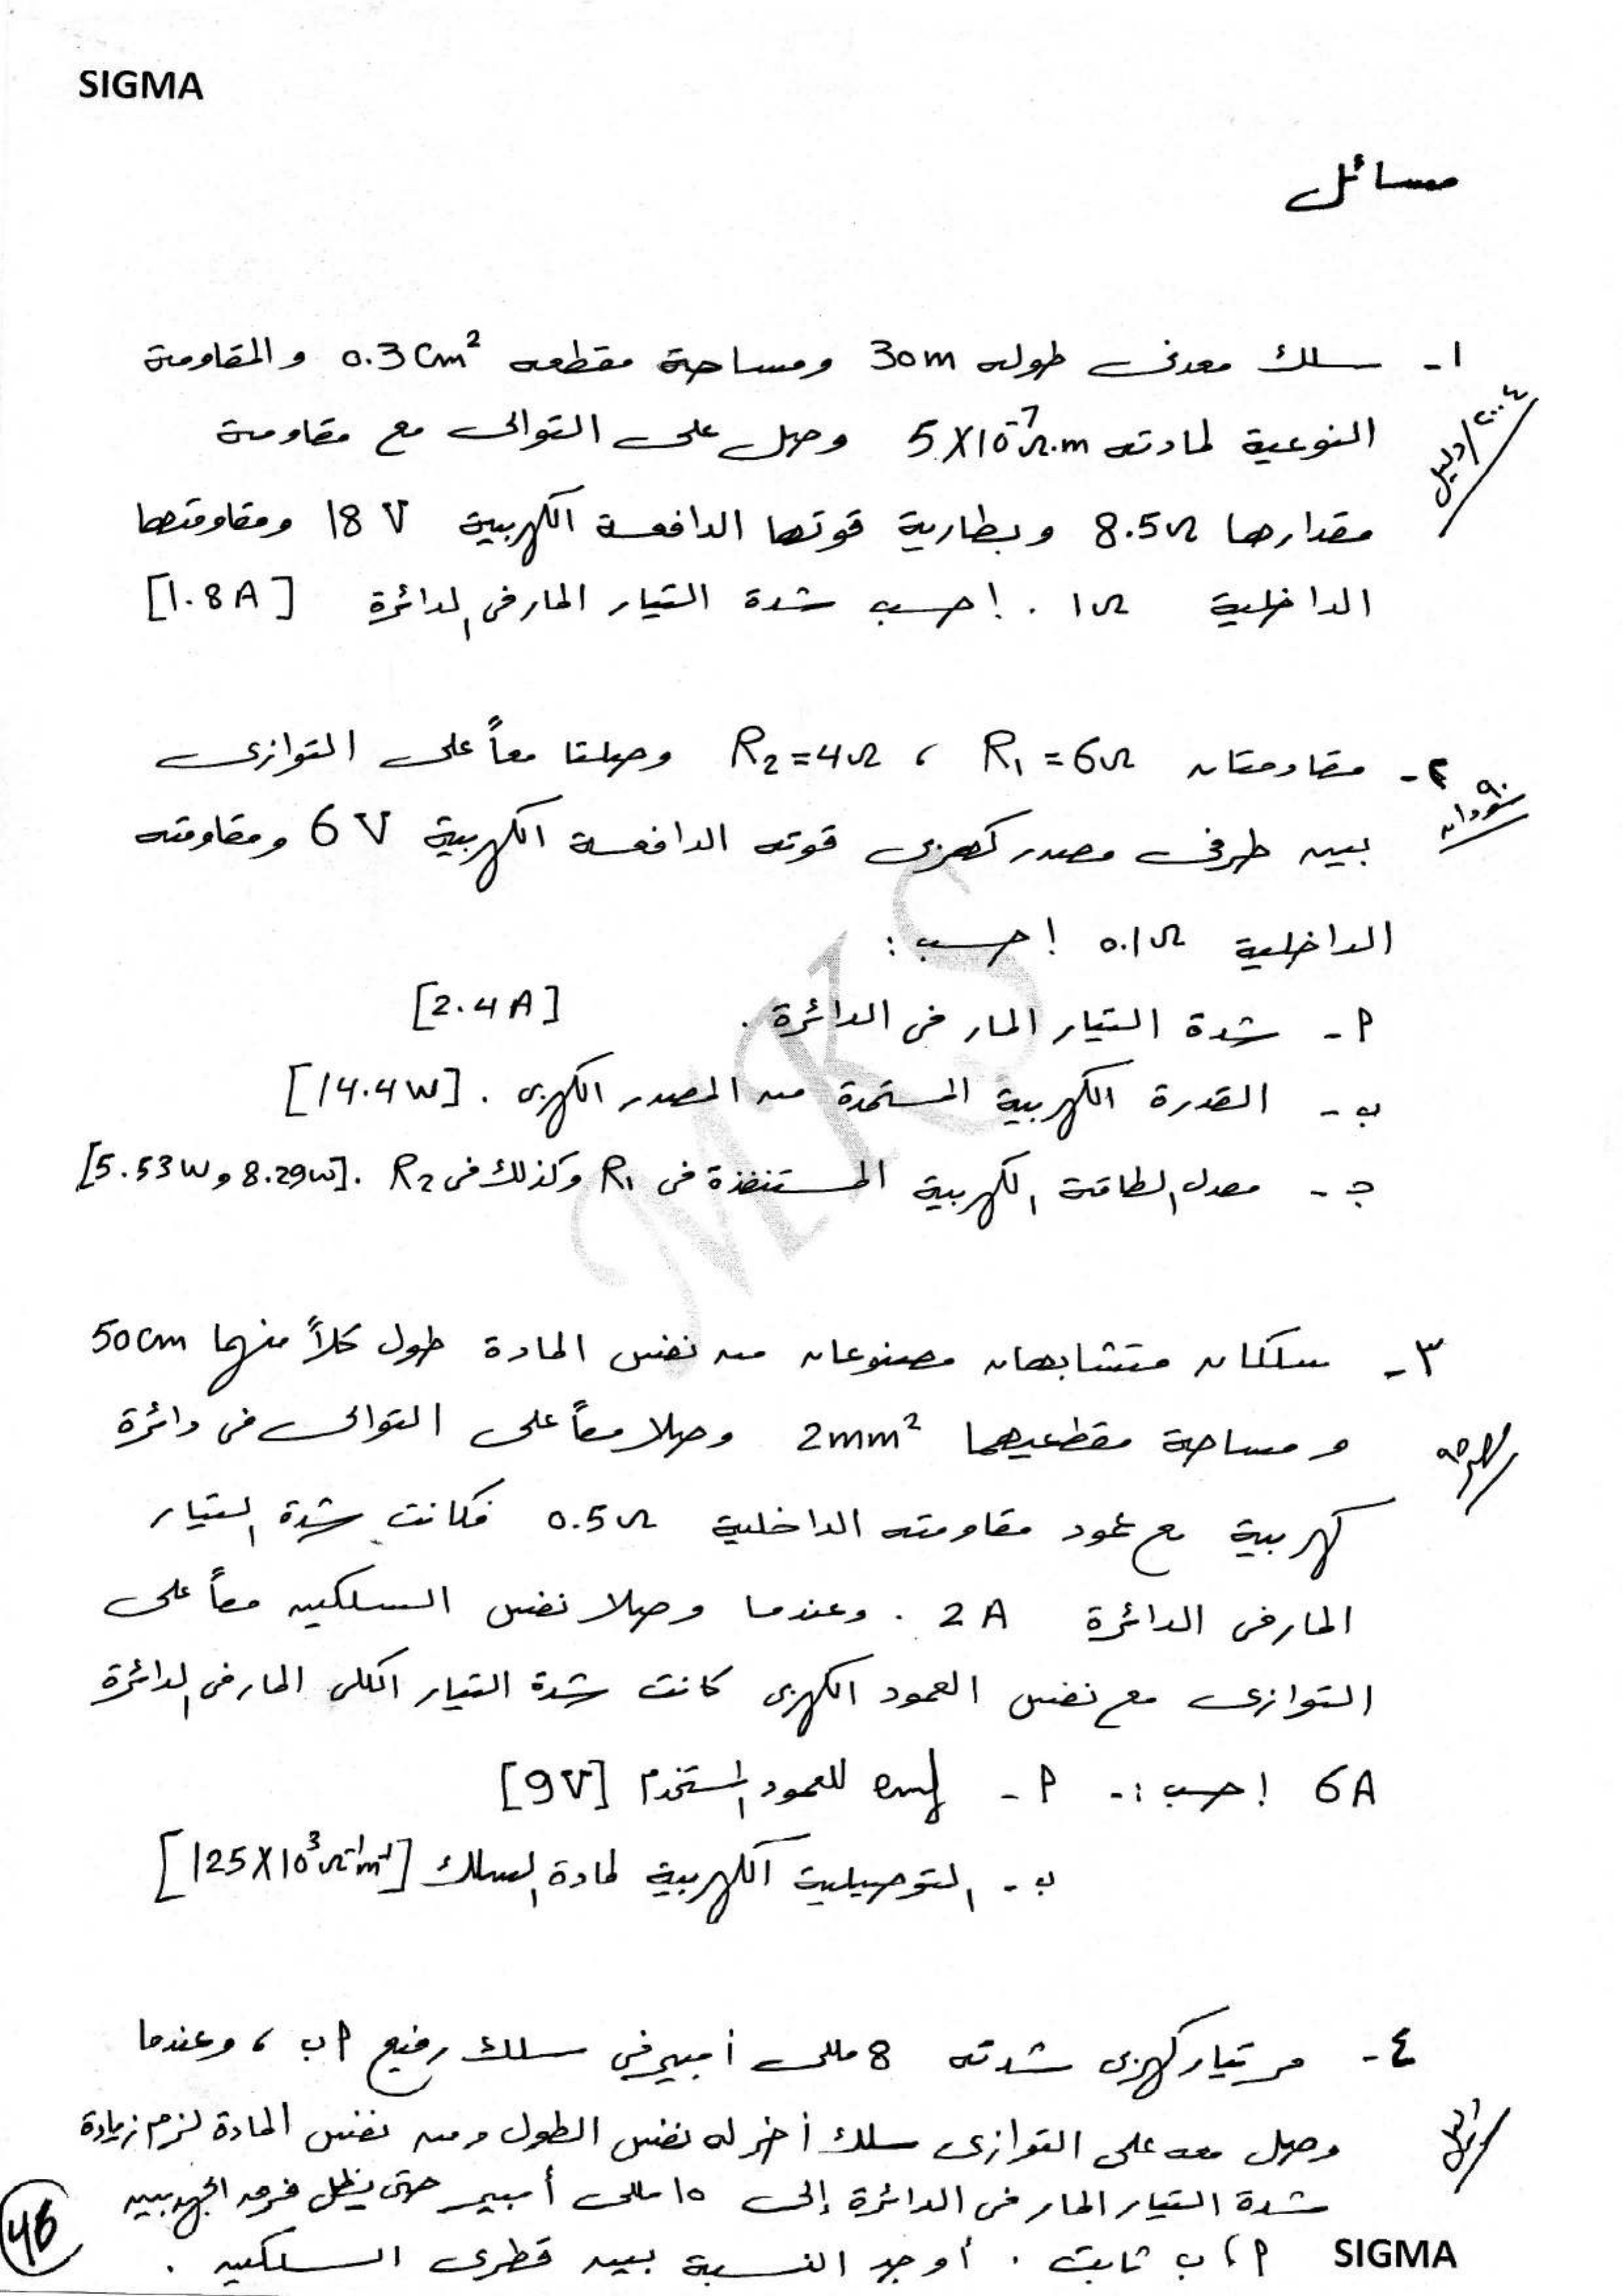 SIGMA
مسائل
١- سلك معدنى طوله 30m ومساحة مقطعه 0.3 cm² والمقاومة
النوعية لمادته 5×10⁻⁷ Ω.m وصل على التوالى مع مقاومة
مقدارها 8.5Ω وبطارية قوتها الدافعة الكهربية 18 V ومقاومتها
الداخلية 1Ω . احسب شدة التيار المار فى الدائرة [1.8A]
٢٠٠٤/دليل
٢- مقاومتان R₁ = 6Ω ، R₂ = 4Ω وصلتا معاً على التوازى
بين طرفى مصدر كهربى قوته الدافعة الكهربية 6 V ومقاومته
الداخلية 0.1Ω احسب :
سودان ٩٠
أ - شدة التيار المار فى الدائرة . [2.4A]
ب - القدرة الكهربية المستمدة من المصدر الكهربى . [14.4W]
ج - معدل الطاقة الكهربية المستنفذة فى R₁ وكذلك فى R₂ . [5.53W و 8.29W]
٣- سلكان متشابهان مصنوعان من نفس المادة طول كلاً منهما 50cm
ومساحة مقطعيهما 2mm² وصلا معاً على التوالى فى دائرة
كهربية مع عمود مقاومته الداخلية 0.5Ω فكانت شدة التيار
المار فى الدائرة 2A . وعندما وصلا نفس السلكين معاً على
التوازى مع نفس العمود الكهربى كانت شدة التيار الكلى المار فى الدائرة
6A احسب :- أ - emf للعمود المستخدم [9V]
ب - التوصيلية الكهربية لمادة السلك [125×10³ Ω⁻¹m⁻¹]
٤- مر تيار كهربى شدته 8 مللى أمبير فى سلك رفيع أ ب ، وعندما
وصل معه على التوازى سلك أخر له نفس الطول ومن نفس المادة لزم زيادة
شدة التيار المار فى الدائرة إلى ١٥ مللى أمبير حتى يظل فرق الجهد بين
أ ، ب ثابت . أوجد النسبة بين قطرى السلكين .
46
SIGMA
MKS